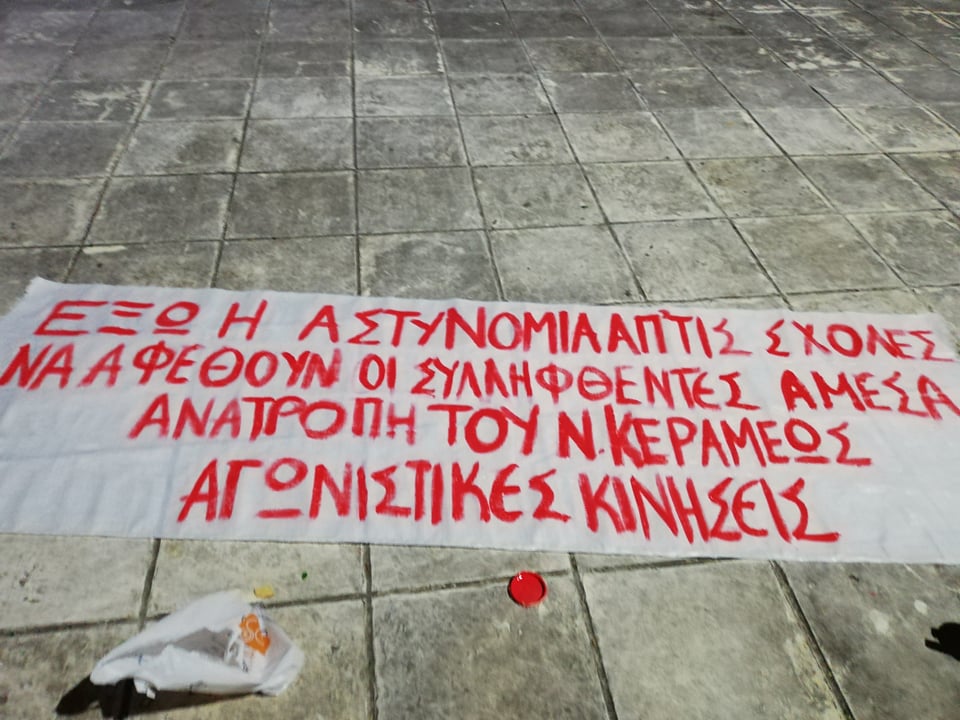 ΕΞΩ Η ΑΣΤΥΝΟΜΙΑ ΑΠ'ΤΙΣ ΣΧΟΛΕΣ
ΝΑ ΑΦΕΘΟΥΝ ΟΙ ΣΥΛΛΗΦΘΕΝΤΕΣ ΑΜΕΣΑ
ΑΝΑΤΡΟΠΗ ΤΟΥ Ν.ΚΕΡΑΜΕΩΣ
ΑΓΩΝΙΣΤΙΚΕΣ ΚΙΝΗΣΕΙΣ